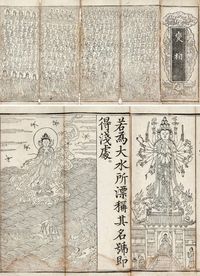 變相
若為大水所漂稱其名號即
得淺處